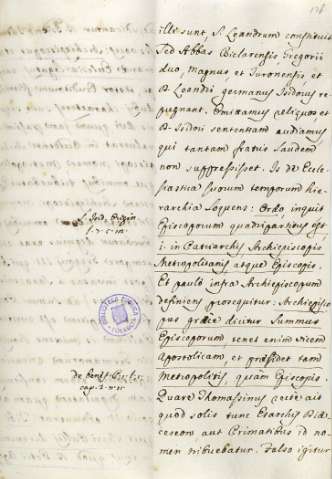 ille sunt, S. Leandrum constituis
sed Abbas Biclarensis Gregorii
duo, Magnus, et Turonensis et
B. Leandri germanus Isidorus re
pugnant. Omittamus reliquos et
B. Isidori sententiam audiamus
qui tantam fratris laudem
non suppressisset. Is de Eccle-
siastica suorum temporum hie
rarchia loquens: Ordo, inquit
Episcoporum quadripartitus est
i. in Patriarchis Archiepiscopis
Metropolitanis atque Episcopis.
Et paulo infra Archiepiscopum
definiens prosequitur: Archiepisco
pus græce dicitur Summus
Episcoporum tenet enim vicem
Apostolicam, et præsidet tam
Metropolitis, quàm Episcopis
Quare Thomassinus recte ait
quod solis tunc Exarchis Diæ
ceseon aut Primatibus id no
men tribuebatur. Falso igitur
S. Isid. Origin
l. 7. c. 12.
cap.